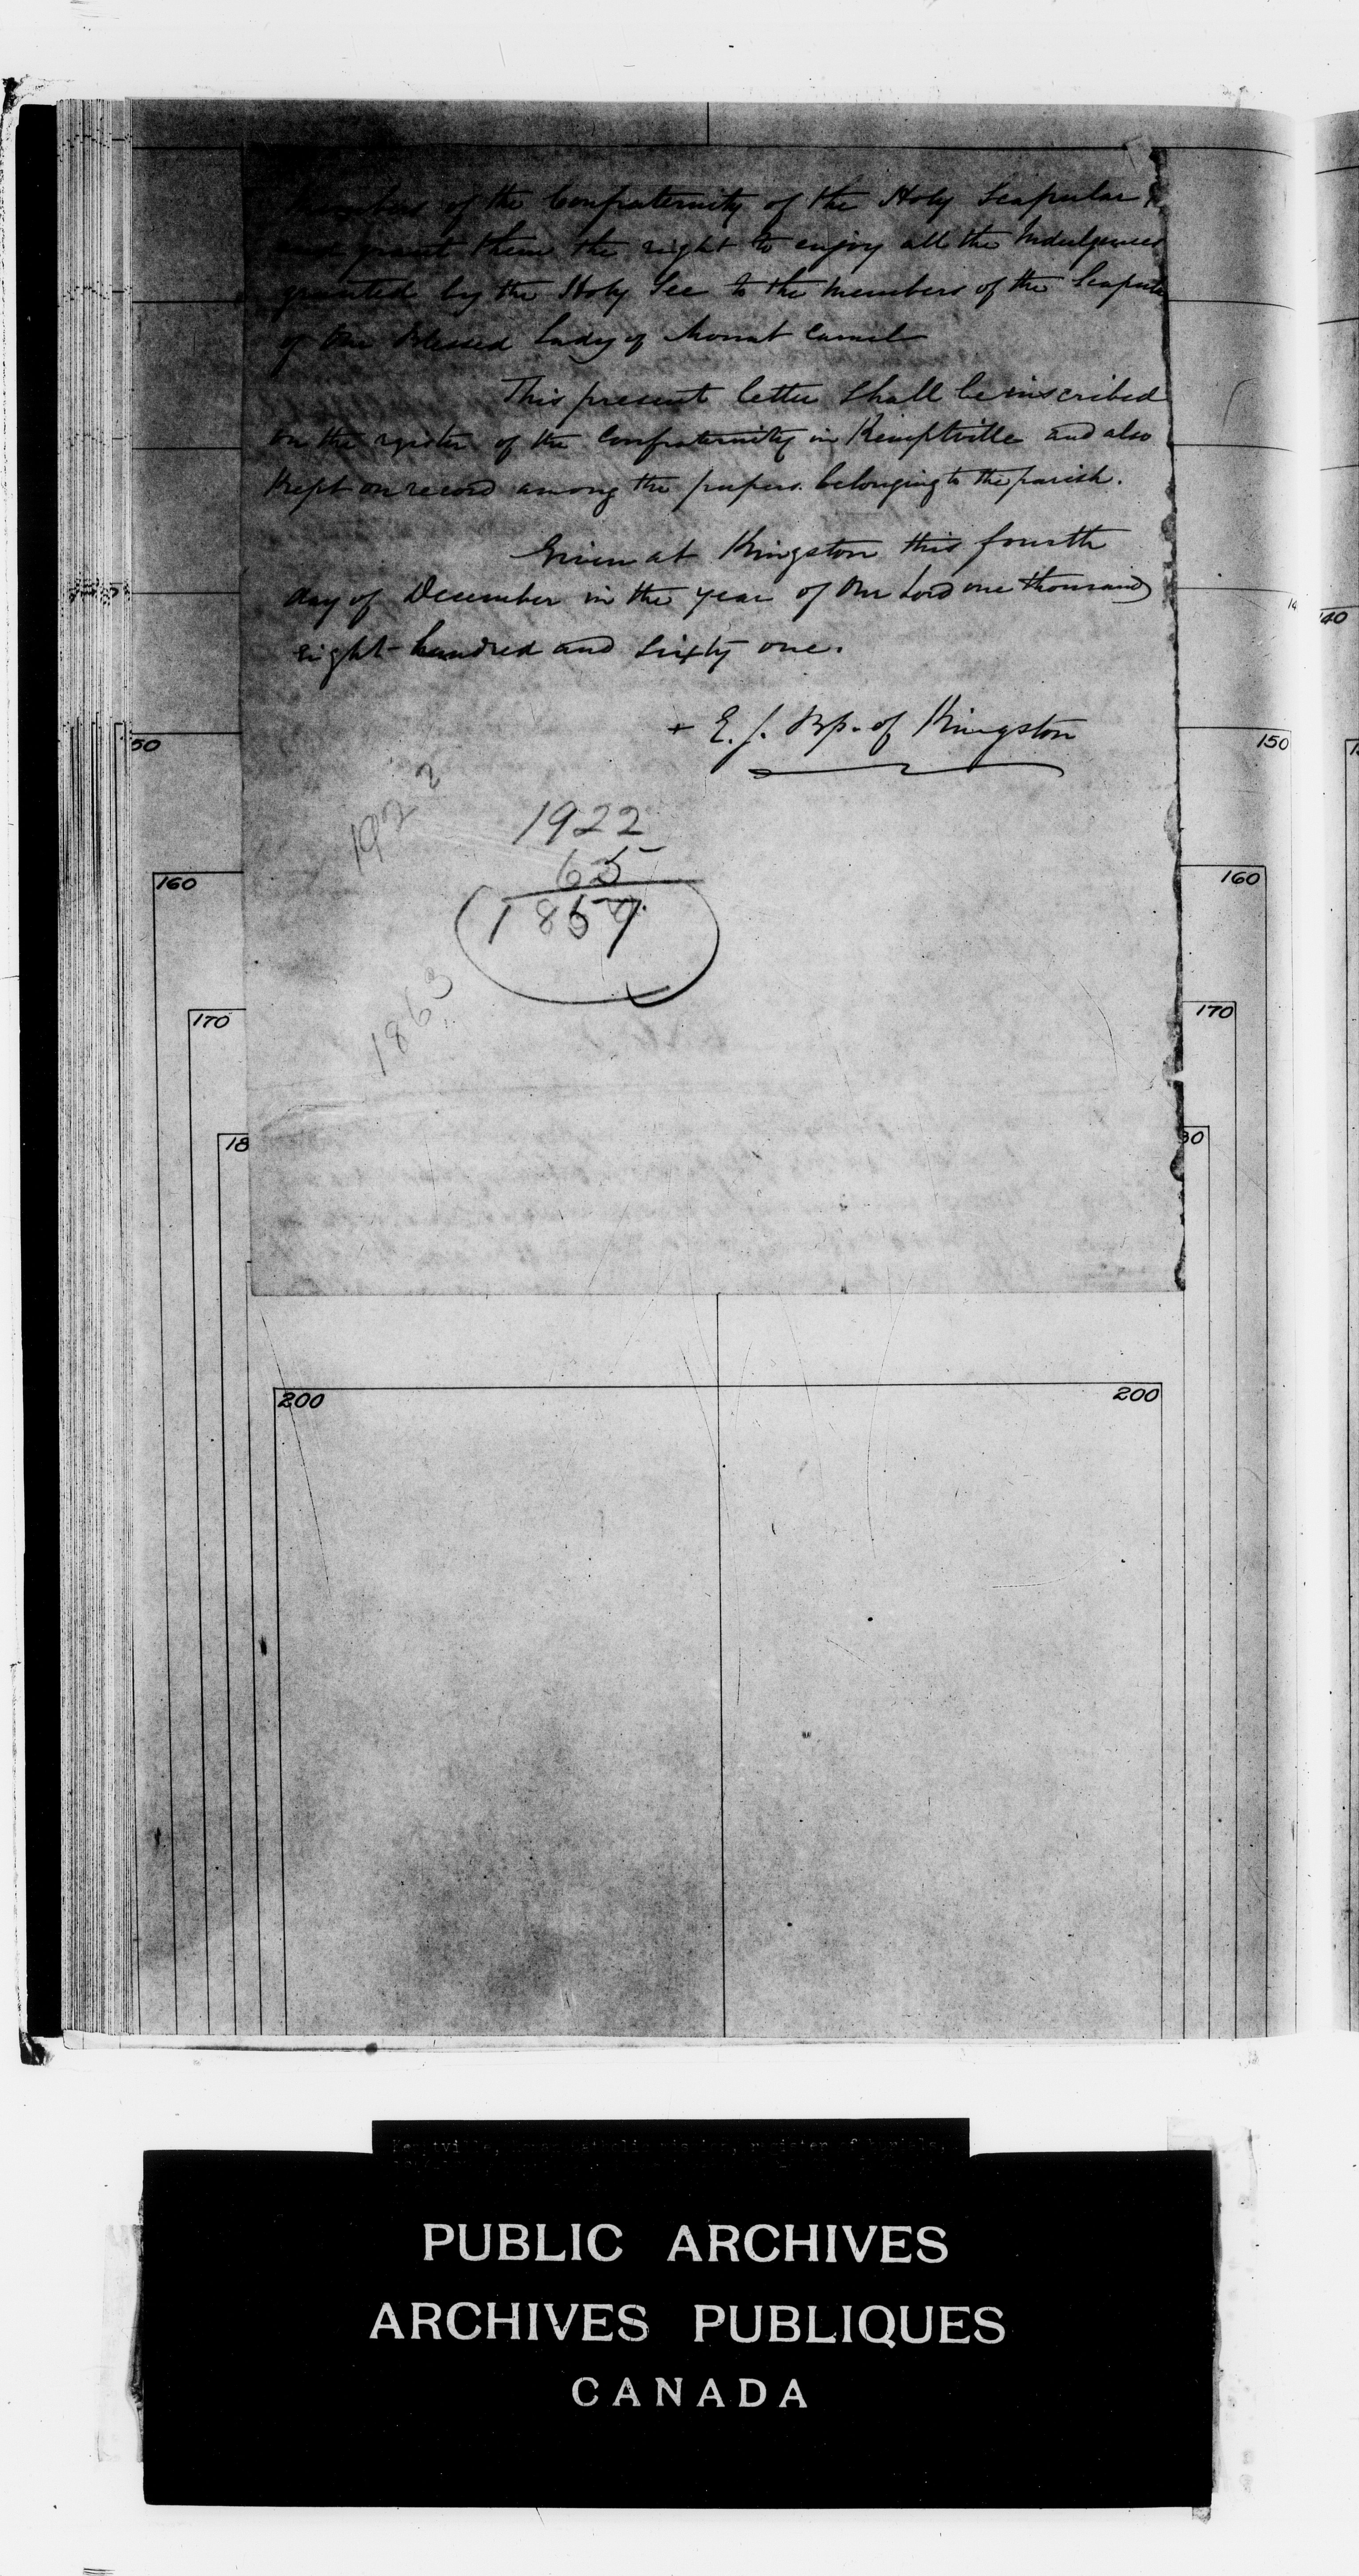 members of the Confraternity of the Holy Scapular &
grant them the right to enjoy all the Indulgences
granted by the Holy See to the members of the Scapular
of Our Blessed Lady of Mount Carmel
This present letter shall be inscribed
on the register of the Confraternity in Kemptville and also
Kept on record among the papers belonging to the parish.
Given at Kingston this fourth
day of December in the year of Our Lord one thousand
eight hundred and sixty one.
+ E. J. Bp. of Kingston
50
150
140
1922
1922
65
1857
160
160
1863
170
170
18
80
200
200
Kemptville, Roman Catholic mission, register of burials,
PUBLIC ARCHIVES
ARCHIVES PUBLIQUES
CANADA